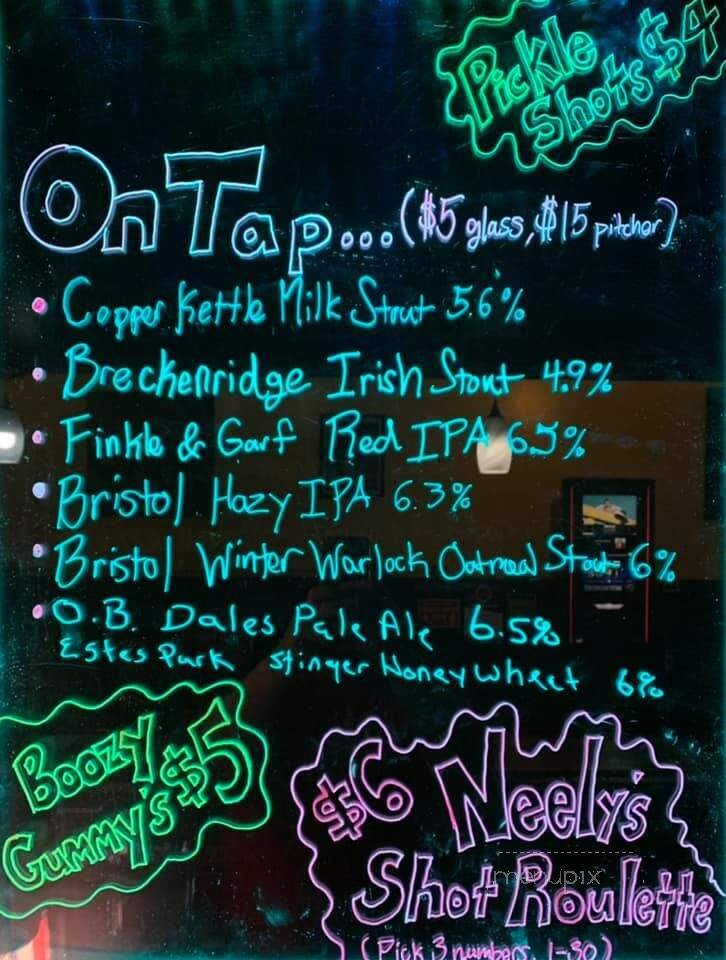 Pickle
Shots $4
On Tap... ($5 glass, $15 pitcher)
• Copper Kettle Milk Stout 5.6%
• Breckenridge Irish Stout 4.9%
• Finkle & Garf Red IPA 6.5%
• Bristol Hazy IPA 6.3%
• Bristol Winter Warlock Oatmeal Stout 6%
• O.B. Dales Pale Ale 6.5%
Estes Park Stinger Honey Wheat 6%
Boozy
Gummy's $5
$6 Neely's
Shot Roulette
(Pick 3 numbers, 1-30)
menupix